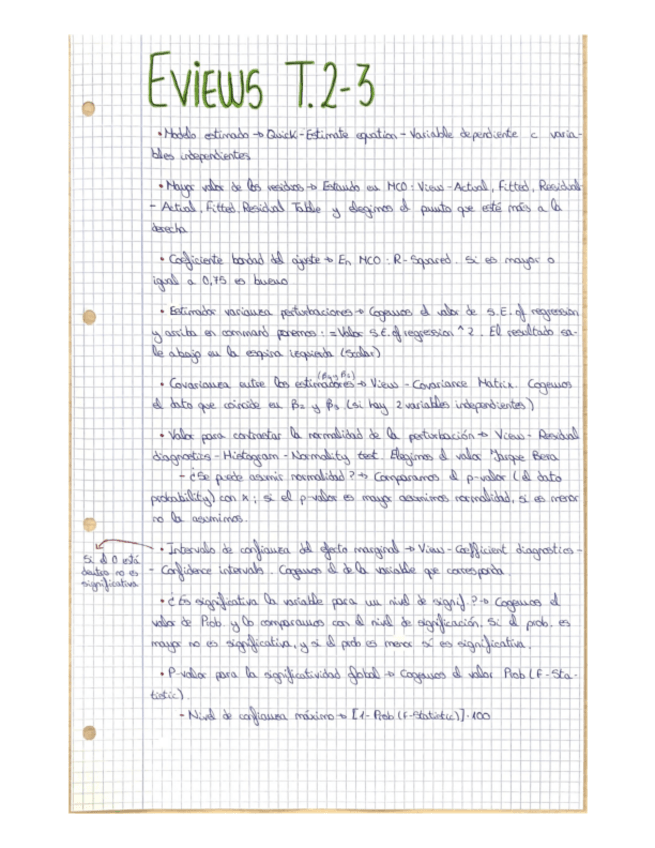 EVIEWS T.2-3
• Modelo estimado → Quick - Estimate equation - Variable dependiente c varia-
bles independientes
• Mayor valor de los residuos → Estando en MCO: View - Actual, Fitted, Residual
- Actual, Fitted, Residual Table y elegimos el punto que esté más a la
derecha
• Coeficiente bondad del ajuste → En MCO: R-Squared. Si es mayor o
igual a 0,75 es bueno
• Estimador varianza perturbaciones → Cogemos el valor de S.E. of regression
y arriba en command ponemos: = Valor S.E. of regression ^2. El resultado sa-
le abajo en la esquina izquierda (Scalar)
• Covarianza entre los estimadores (β₂, β₃) → View - Covariance Matrix. Cogemos
el dato que coincide en β₂ y β₃ (si hay 2 variables independientes)
• Valor para contrastar la normalidad de la perturbación → View - Residual
diagnostics - Histogram - Normality test. Elegimos el valor Jarque Bera
- ¿Se puede asumir normalidad? → Comparamos el p-valor (el dato
probability) con α; si el p-valor es mayor asumimos normalidad, si es menor
no la asumimos.
• Intervalo de confianza del efecto marginal → View - Coefficient diagnostics -
- Confidence intervals. Cogemos el de la variable que corresponda
Si el 0 está
dentro no es
significativa
• ¿Es significativa la variable para un nivel de signif.? → Cogemos el
valor de Prob. y lo comparamos con el nivel de significación. Si el prob. es
mayor no es significativa, y si el prob es menor sí es significativa.
• P-valor para la significatividad global → Cogemos el valor Prob (F-Sta-
tistic)
- Nivel de confianza máximo → [1 - Prob (F-Statistic)]·100